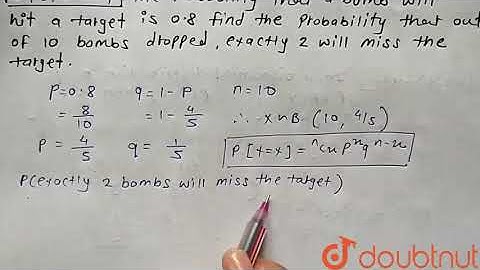 the probability that a bomb will
hit a target is 0.8 find the probability that out
of 10 bombs dropped, exactly 2 will miss the
target.
P=0.8 q=1-P n=10
= 8/10 = 1 - 4/5 ∴ X ~ B (10, 4/5)
P = 4/5 q = 1/5 P[X=x] = ⁿCx pˣ qⁿ⁻ˣ
P(exactly 2 bombs will miss the target)
doubtnut